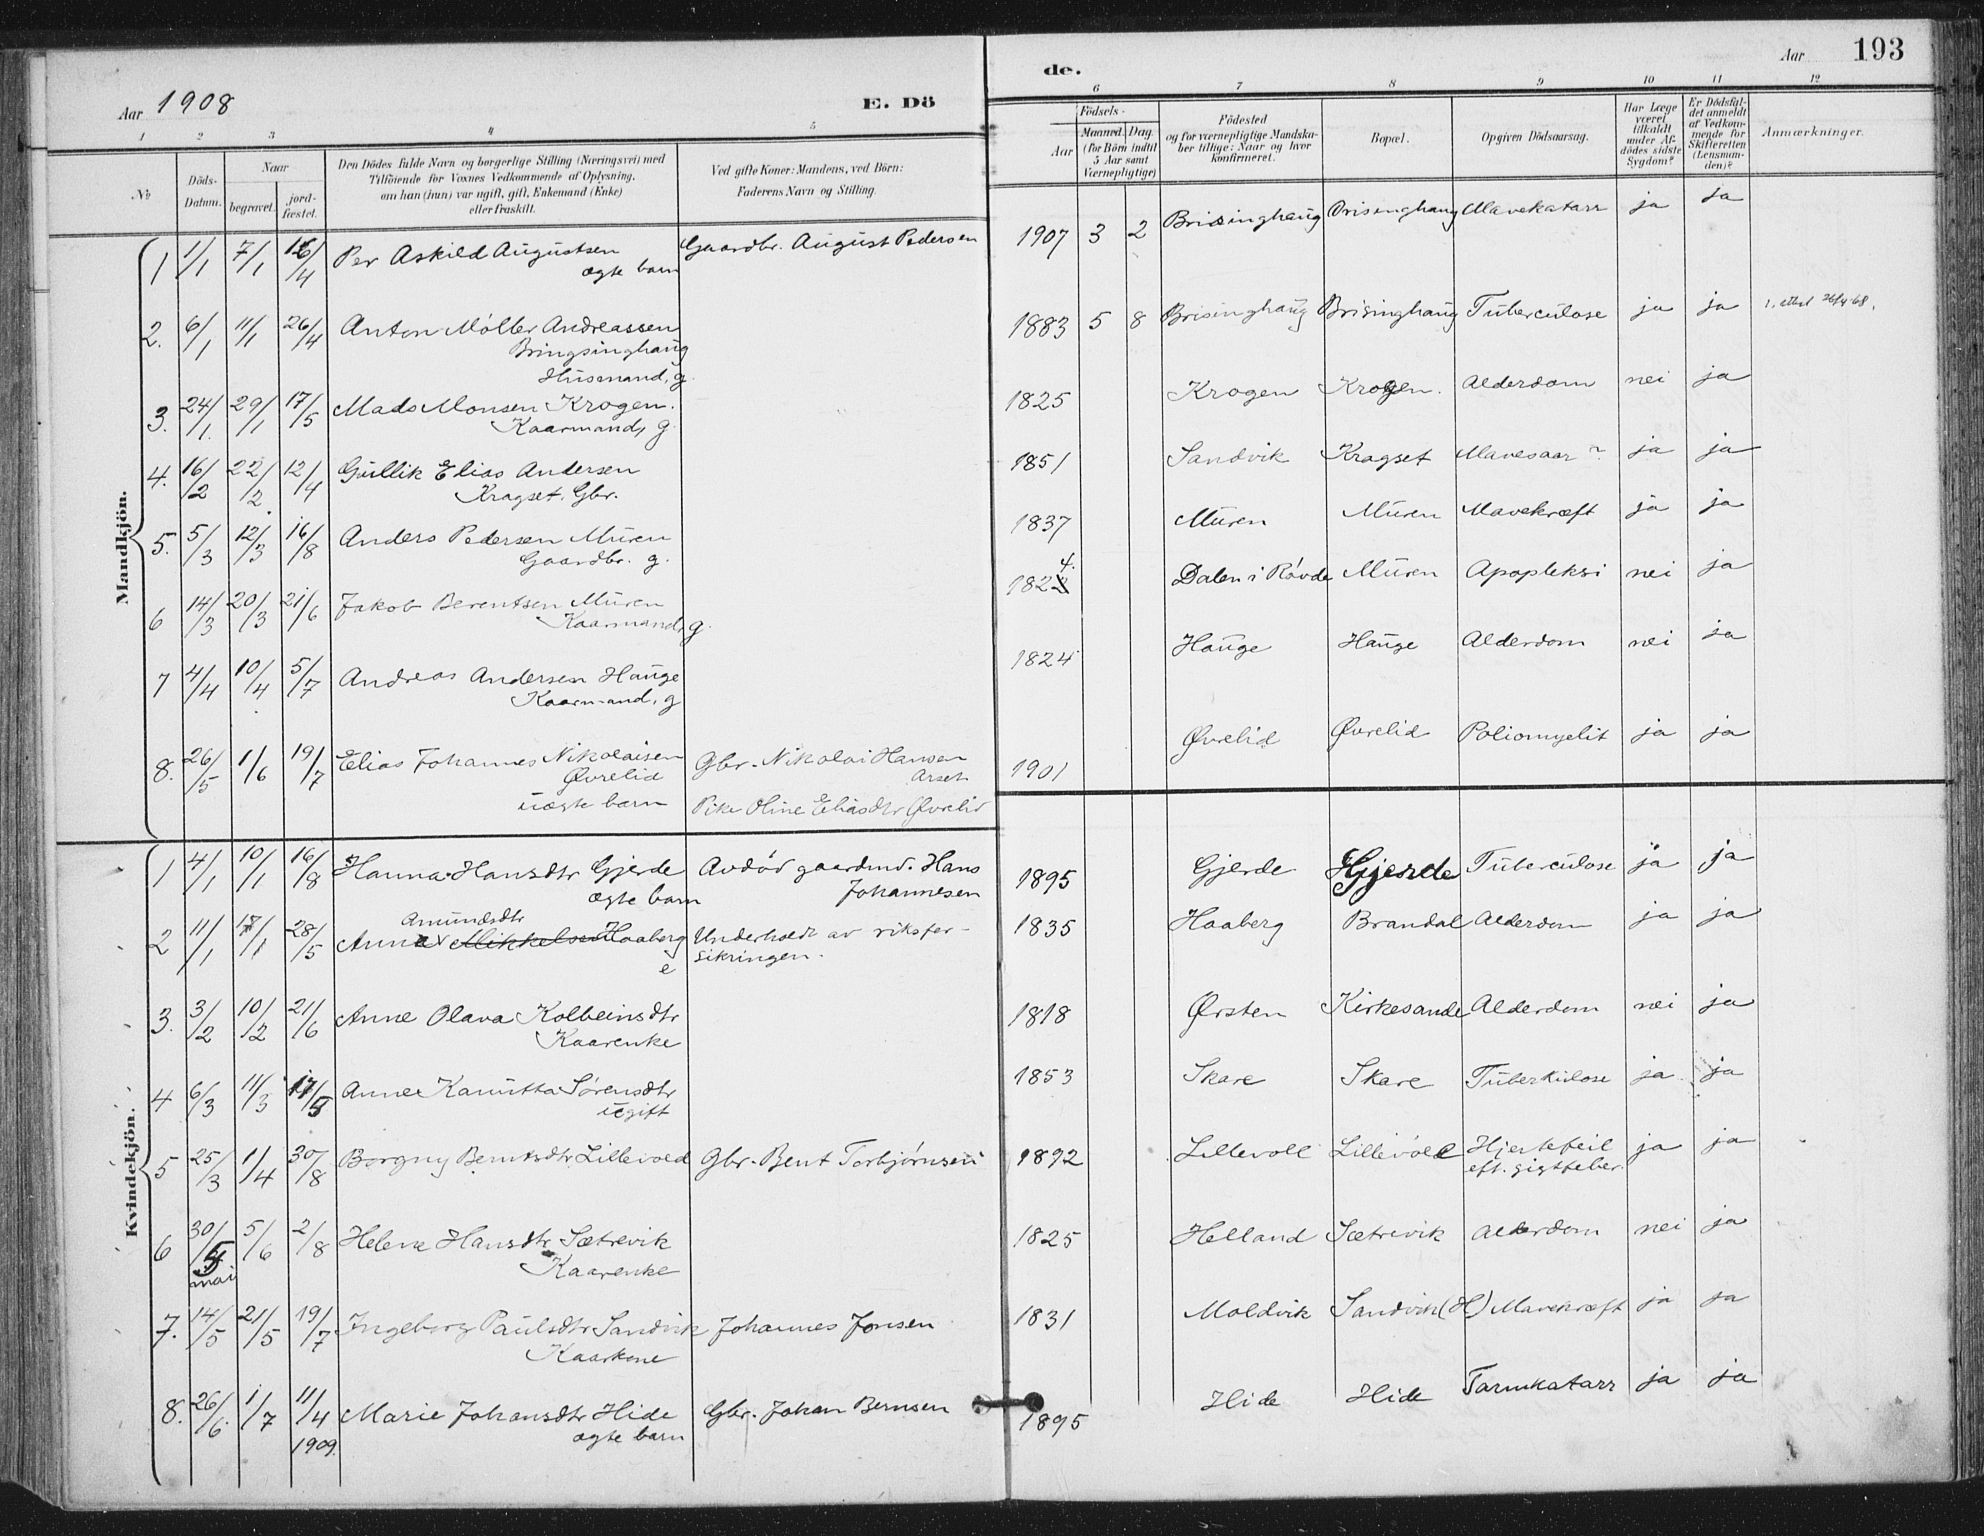 Aar 1908
E. Dö
de.
Aar 193
1 2 3 4 5 6 7 8 9 10 11 12
No
Döds-
Datum.
Naar
begravet.
jord-
fæstet.
Den Dödes fulde Navn og borgerlige Stilling (Næringsvei) med
Tilföiende for Voxnes Vedkommende af Oplysning,
om han (hun) var ugift, gift, Enkemand (Enke)
eller fraskilt.
Ved gifte Koner: Mandens, ved Börn:
Faderens Navn og Stilling.
Födsels-
Aar
Maaned. Dag.
(for Börn indtil
5 Aar samt
Værnepligtige)
Födested
og for værnepligtige Mandska-
ber tillige: Naar og hvor
konfirmeret.
Bopæl.
Opgiven Dödsaarsag.
Har Læge
været
tilkaldt
under Af-
dödes sidste
Sygdom?
Er Dödsfal-
det anmeldt
af Vedkom-
mende for
Skifteretten
(Lensman-
den)?
Anmærkninger.
Mandkjön.
1 1/1 7/1 /4 Per Askild Augustsen Gaardbr. August Pedersen 1907 3 2 Brisinghaug Brisinghaug Mavekatarr ja ja
ægte barn
2. 6/1 11/1 26/4 Anton Møller Andreassen 1883 5 8 Brisinghaug Brisinghaug Tuberculose ja ja
Bringsinghaug
Husmand, g.
3. 24/1 29/1 17/5 Mads Monsen Krogen. 1825 Krogen Krogen. Alderdom nei ja
Kaarmand, g
4. 16/2 22/2 12/4 Gullik Elias Andersen 1851 Sandvik Kragset Mavesaar? ja ja
Kragset. Gbr.
5. 5/3 12/3 16/8 Anders Pedersen Muren 1837 Muren Muren Mavekræft ja ja
Gaardbr. g.
6 14/3 20/3 21/6 Jakob Berentsen Muren 1824. Dalen i Røvde Muren Apopleksi nei ja
Kaarmand, g.
7 4/4 10/4 5/7 Andreas Andersen Hauge 1824 Hauge Hauge Alderdom nei ja
Kaarmand, g
8. 26/5 1/6 19/7 Elias Johannes Nikolaisen Gbr. Nikolai Hansen 1901 Øvrelid Øvrelid Poliomyelit ja ja
Øvrelid Arset
uægte barn Pike Oline Eliasdtr Øvrelid
Kvindekjön.
1 4/1 10/1 16/8 Hanna Hansdtr Gjerde Avdød gaardmd. Hans 1895 Gjerde Gjerde Tuberculose ja ja
ægte barn Johannesen
Amundsdtr
2 11/1 17/1 28/5 Anne Mikkelsen Haaberg Underholdt av riksfor- 1835 Haaberg Brandal Alderdom ja ja
e sikringen.
3. 3/2 10/2 21/6 Anne Olava Kolbeinsdtr 1818 Ørsten Kirkesande Alderdom nei ja
Kaarenke
4 6/3 11/3 17/5 Anne Kanutta Sørensdtr 1853 Skare Skare Tuberkulose ja ja
ugift
5 25/3 1/4 30/8 Borgny Bentsdtr Lillevold Gbr. Bent Torbjørnsen 1892 Lillevoll Lillevold Hjertefeil ja ja
eft. gigtfeber.
6 30/5 5/6 2/8 Helene Hansdtr Sætrevik 1825 Helland Sætrevik Alderdom nei ja
mai Kaarenke
7. 14/5 21/5 19/7 Ingeborg Paulsdtr Sandvik Johannes Jonsen 1831 Moldvik Sandvik (H) Mavekræft ja ja
Kaarkone
8. 26/6. 1/7 11/4 Marie Johansdtr Hide Gbr. Johan Bernsen 1895 Hide Hide Tarmkatarr ja ja
1909. ægte barn